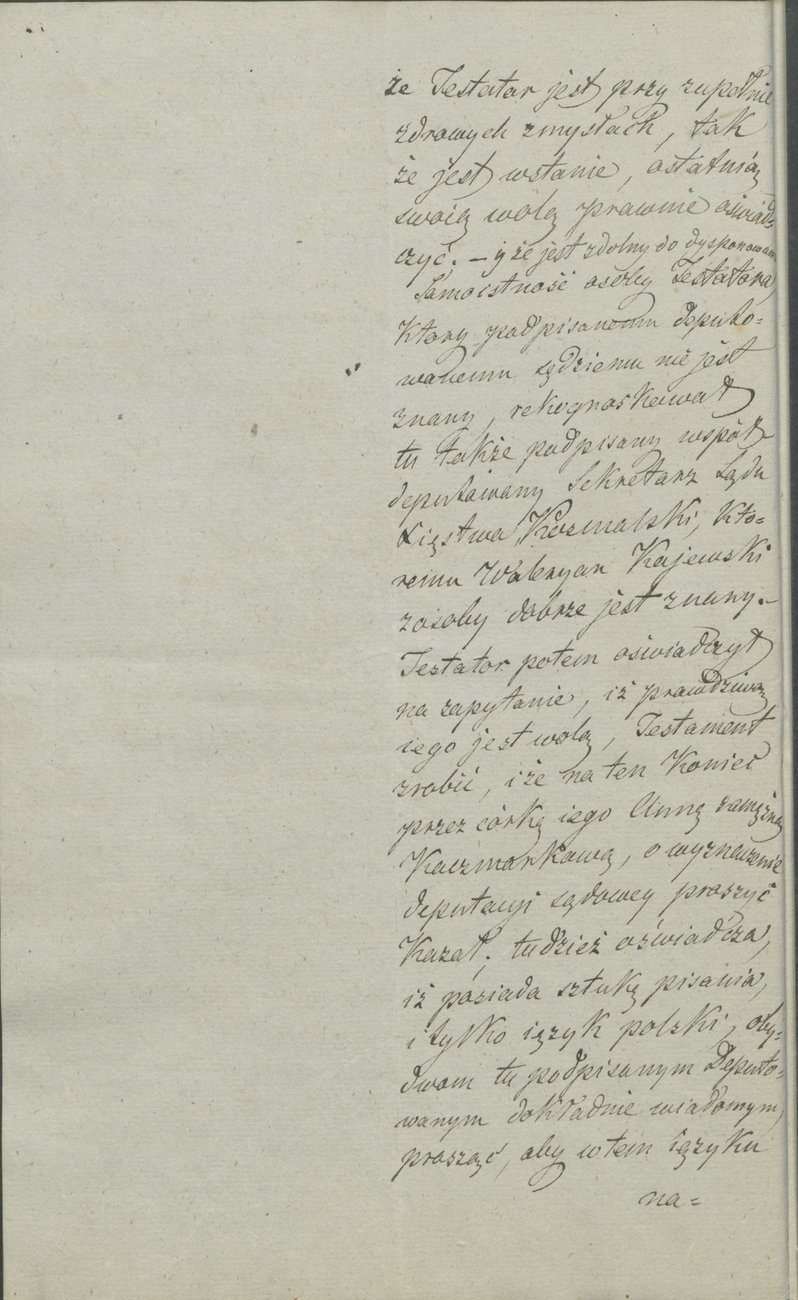 że Testator jest przy zupełnie
zdrowych zmysłach, tak
że jest wstanie, ostatnią
swoią wolą prawnie oświad-
czyć. – y że jest zdolny do dysponowani
Samoistność osoby Testatora,
Ktory podpisanemu deputo=
wanemu sędziemu nie jest
znany, rekognoskował
tu także podpisany współ-
deputowany Sekretarz Sądu
Xięstwa Koźmalski, Kto=
remu Waleryan Kajewski
zosoby dobrze jest znany.–
Testator potem oświadczył
na zapytanie, iż prawdziwą
iego jest wolą, Testament
zrobić, i że na ten Koniec
przez córkę iego Annę zamężną
Kaczmarkową, o wyznaczenie
deputacyi sądowey proszyć
Kazał; tudzież oświadcza,
iż posiada sztukę pisania,
i tylko ięzyk polski, oby=
dwom tu podpisanym Deputo=
wanym dokładnie wiadomym,
prosząć, aby w tem ięzyku
na=